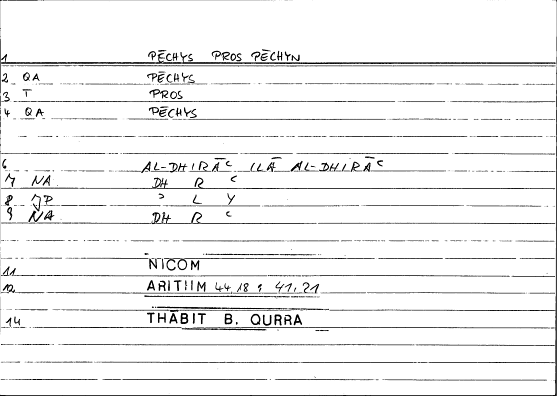 1 PĒCHYS PROS PĒCHYN
2 QA PĒCHYS
3 T PROS
4 QA PĒCHYS
6 AL-DHIRĀᶜ ILĀ AL-DHIRĀᶜ
7 NA DH R ᶜ
8 JP ᵓ L Y
9 NA DH R ᶜ
11 NICOM
12 ARITIIM 44,18 ; 41,21
14 THĀBIT B. QURRA